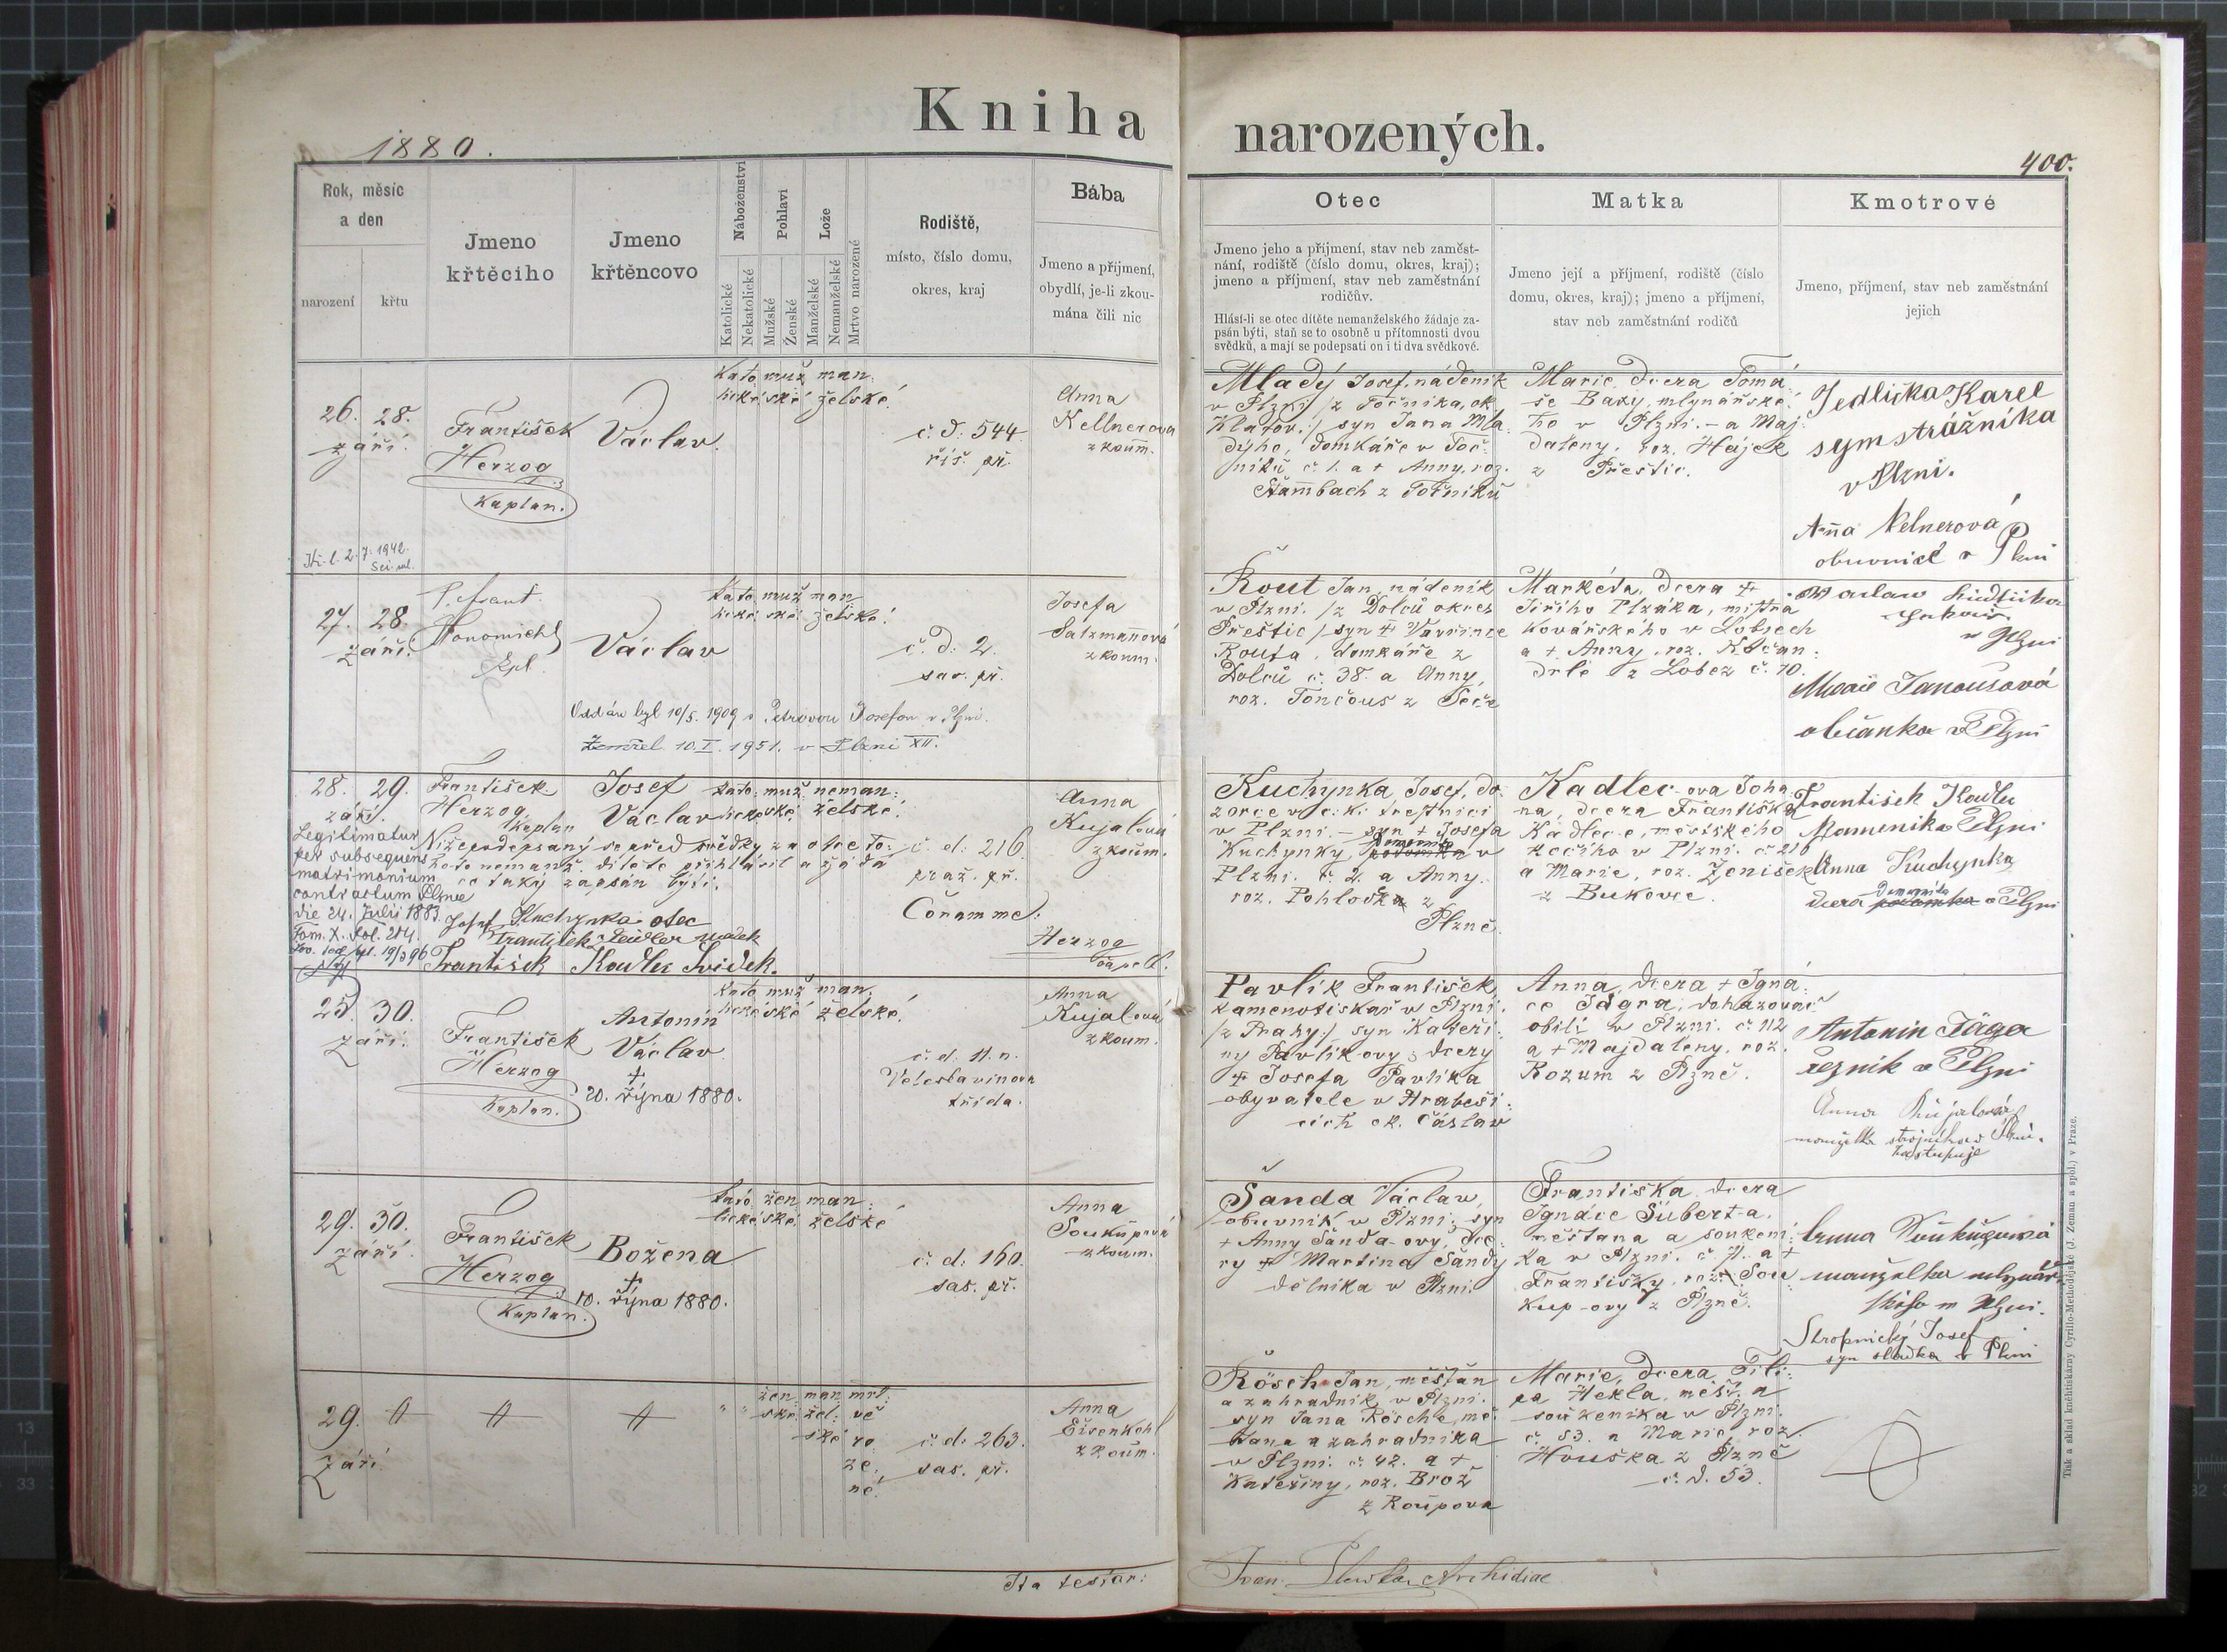 Kniha narozených.
1880.
400.
Rok, měsíc
a den
narození
křtu
Jmeno
křtěciho
Jmeno
křtěncovo
Náboženství
Katolické
Nekatolické
Pohlaví
Mužské
Ženské
Lože
Manželské
Nemanželské
Mrtvo narozené
Rodiště,
místo, číslo domu,
okres, kraj
Bába
Jmeno a příjmení,
obydlí, je-li zkou-
mána čili nic
Otec
Jmeno jeho a příjmení, stav neb zaměst-
nání, rodiště (číslo domu, okres, kraj);
jmeno a příjmení, stav neb zaměstnání
rodičův.
Hlásí-li se otec dítěte nemanželského žádaje za-
psán býti, staň se to osobně u přítomnosti dvou
svědků, a mají se podepsati on i ti dva svědkové.
Matka
Jmeno její a příjmení, rodiště (číslo
domu, okres, kraj); jmeno a příjmení,
stav neb zaměstnání rodičů
Kmotrové
Jmeno, příjmení, stav neb zaměstnání
jejich
26. 28.
září.
František
Herzog
Kaplan.
Václav
Kato muž man:
lické ské želské.
č. d: 544
říš. př.
Anna
Kellnerova
zkoum.
2. 7. 1942.
Mladý Josef, nádeník
v Plzni /z Točníka, ok.
Klatov:/ syn Jana Mla
dýho, domkáře v Toč:
níku č 1. a + Anny, roz.
Štambach z Točníku
Marie, dcera Tomá:
še Baxy, mlynářské:
ho v Plzni. - a Maj:
daleny, roz. Hájek
z Přeštic.
Jedlička Karel
syn strážníka
v Plzni.
Anna Kelnerová
obuvnicě v Plzni
27. 28.
září.
P. Frant.
Wonomichl
Kpl.
Václav
Kato muž man
lické ské želské.
č. d: 2.
sas. př.
Josefa
Salzmannová
zkoum.
Oddán byl 10/5. 1909 s Petrovou Josefou v Plzni.
Zemřel 10.I. 1951. v Plzni XII.
Kout Jan, nádeník
v Plzni. /z Dolců okres
Přeštic/ syn + Vavřince
Kouta, domkáře z
Dolců č. 38. a Anny,
roz. Tončous z Seče
Markéta, dcera +
Jiřího Plzáka, mistra
kovářského v Lobzech
a + Anny, roz.
drle z Lobez č. 10.
v Plzni
Marie Janousová
občanka v Plzni
28. 29.
září.
František
Herzog
Kaplan
Josef
Václav
Kato: muž neman:
lické ské želské.
Legitimatus
per subsequens
matrimonium
contractum Plznae
die 24. Julii 1883.
Tom. X. Fol. 214.
Níže podepsaný se před svědky za otce to:
hoto nemanž. dítěte přihlásil a žádá
co taký zapsán býti.
Josef Kuchynka otec
František Kadlec svědek.
č. d: 216.
praž. př.
Coram me:
Herzog
Anna
Kujalová
zkoum.
Kuchynka Josef, do
zorce v c. k. trestnici
v Plzni, - syn + Josefa
Kuchynky, v
Plzni. č 2. a Anny.
roz. Pohlodka z
Plzně.
Kadlec-ova Joha
na, dcera Františka
Kadlece, městského
kočího v Plzni. č 216
a Marie, roz. Ženíšek
z Bukovce.
František Kadlec
v Plzni
Anna Kuchynka
dcera v Plzni
25. 30.
září.
František
Herzog
Kaplan.
Antonín
Václav
+
20. října 1880.
Kato muž man.
lické ské želské.
č. d. 11. n.
Veleslavinova
třída.
Anna
Kujalová
zkoum.
Pavlík František,
kamenotiskař v Plzni.
/z Prahy:/ syn Kateři:
ny Pavlíkovy, dcery
+ Josefa Pavlíka
obyvatele v Hrabeši:
cích ok. Čáslav
Anna, dcera + Igná:
ce Jägra, dohazovač
obilí v Plzni. č 112
a + Majdaleny, roz.
Rozum z Plzně.
Antonín Jäger
řezník v Plzni
Anna Kujalová
manželka strojníka v Plzni.
zastupuje
29. 30.
září.
František
Herzog
Kaplan.
Božena
+
10. října 1880.
Kato žen man:
lické ské želské
č. d: 160.
sas. př.
Anna
Soukupová
zkoum.
Šanda Václav,
obuvník v Plzni, syn
+ Anny Šanda-ovy, dce:
ry + Martina Šandy
dělníka v Plzni.
Františka, dcera
Ignáce Šúbert-a,
měšťana a soukení:
ka v Plzni. č 71. a +
Františky, roz. Sou
kup-ovy z Plzně.
Anna Soukupová
manželka mlynář
ského v Plzni.
Stropnický Josef
syn sládka v Plzni
29.
září
žen: man mrt:
ské: žel: vě
ské ro
ze:
né.
č. d: 263.
sas. př.
Anna
Eisenkehl
zkoum.
Rösch Jan, měšťan
a zahradník v Plzni.
syn Jana Rösche, mě:
šťana a zahradníka
v Plzni. č. 42. a +
Kateřiny, roz. Brož
z Roupova
Marie, dcera Fili:
pa Hekla, měšť. a
soukeníka v Plzni.
č. 53. a Marie, roz.
Houška z Plzně
č. d. 53.
Ita testar:
Archidiac
Tisk a sklad knihtiskárny Cyrillo-Methodějské (J. Zeman a spol.) v Praze.